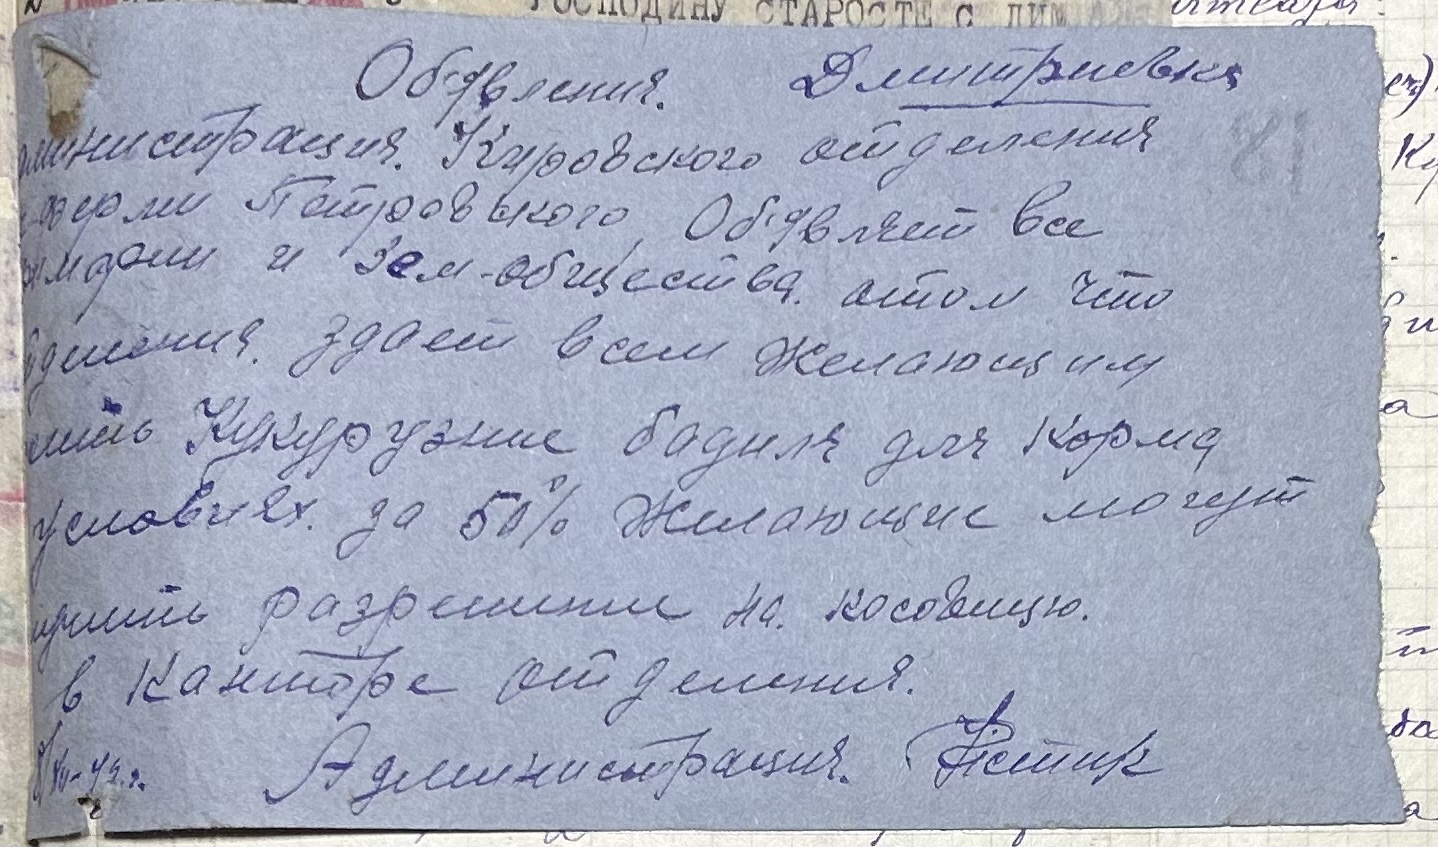 ГОСПОДИНУ СТАРОСТЕ С ДИМ
Обявления. Дмитриевка
министрация. Кировского отделения
Петровского Обявляет все
и Зем-общества. отом что
деления. здает всем желающим
Кукурузние бадиля для корма
условиях. за 50% Желающие могут
разрешиние на. косовицю.
в Канторе отделения.
Администрация.
81